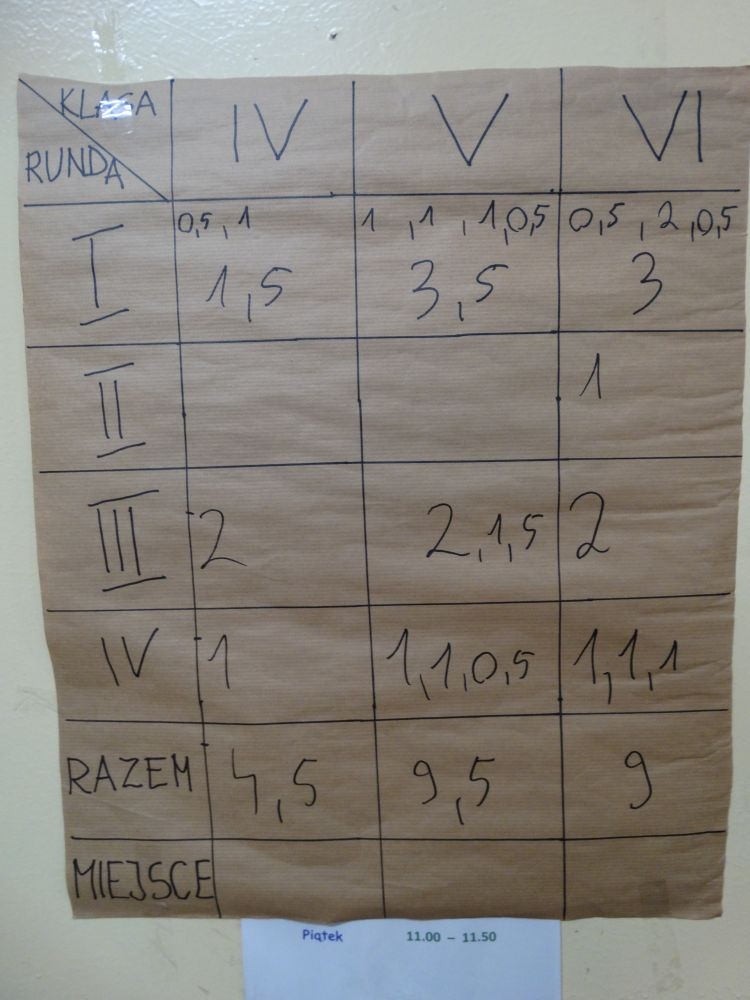 KLASA IV V VI
RUNDA
I 0,5 , 1 1 , 1 , 1,0,5 0,5 , 2 , 0,5
1,5 3,5 3
II 1
III 2 2,1,5 2
IV 1 1,1,0,5 1,1,1
RAZEM 4,5 9,5 9
MIEJSCE
Piątek 11.00 – 11.50